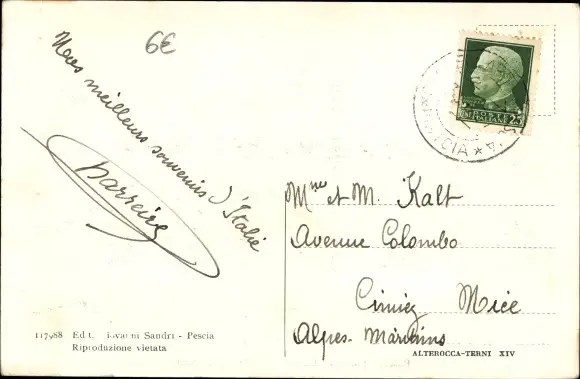 6€
Nos meilleurs souvenirs d'Italie
POSTE ITALIANE
CENT. 25
Mme et M. Kalt
Avenue Colombo
Cimiez Nice
Alpes-Maritimes
117988 Edit. Sandri - Pescia
Riproduzione vietata
ALTEROCCA-TERNI XIV